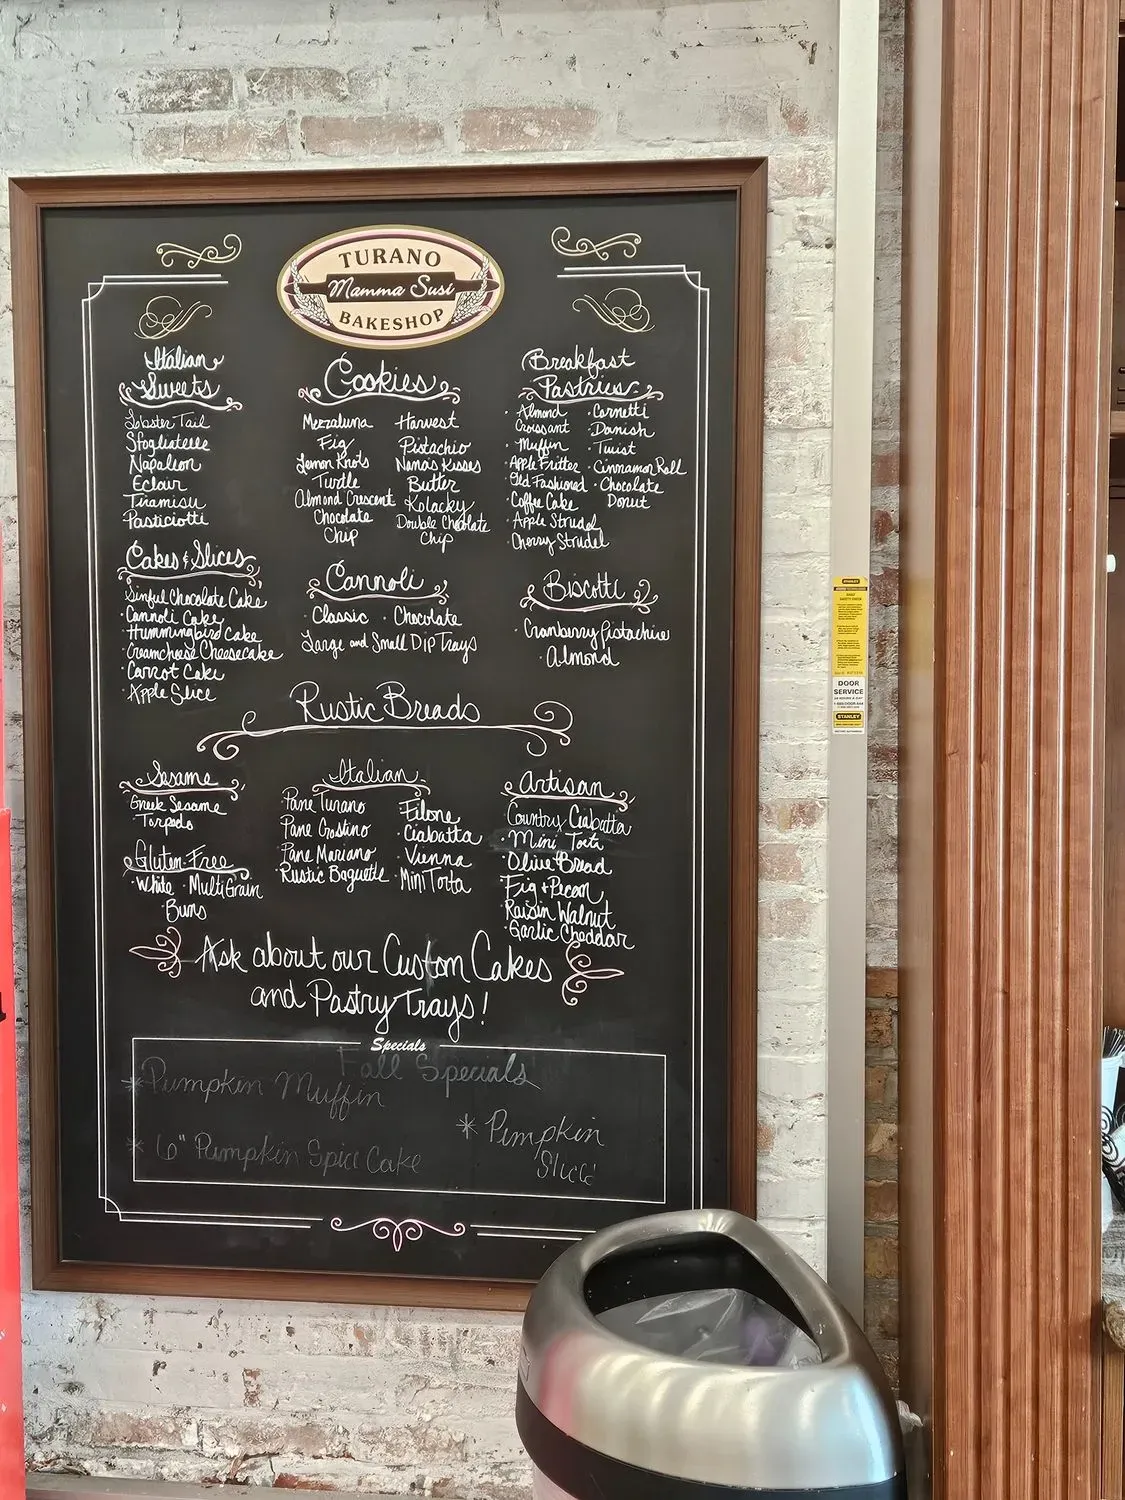 TURANO
Mamma Susi
BAKESHOP
Italian
Sweets
Lobster Tail
Sfogliatelle
Napaleon
Eclair
Tiramisu
Pasticiotti
Cookies
Mezzaluna
Fig
Lemon Knots
Turtle
Almond Crescent
Chocolate
Chip
Harvest
Pistachio
Nana's Kisses
Butter
Kolacky
Double Chocolate
Chip
Breakfast
Pastries
· Almond
Croissant
· Muffin
· Apple Fritter
· Old Fashioned
· Coffee Cake
· Apple Strudel
· Cherry Strudel
· Cornetti
· Danish
· Twist
· Cinnamon Roll
· Chocolate
Donut
Cakes & Slices
· Sinful Chocolate Cake
· Cannoli Cake
· Hummingbird Cake
· Creamcheese Cheesecake
· Carrot Cake
· Apple Slice
Cannoli
· Classic · Chocolate
Large and Small DIP Trays
Biscotti
· Cranberry Pistachio
· Almond
Rustic Breads
Sesame
Greek Sesame
Torpedo
Gluten-Free
· White · MultiGrain
· Buns
Italian
Pane Turano
Pane Mariano
Rustic Baguette
· Filone
· Ciabatta
· Vienna
· Mini Torta
Artisan
· Country Ciabatta
· Mini Torta
· Olive Bread
Fig + Pecan
Raisin Walnut
· Garlic Cheddar
Ask about our Custom Cakes
and Pastry Trays!
Specials
Fall Specials
* Pumpkin Muffin
* 6" Pumpkin Spice Cake
* Pumpkin
Slice
STANLEY
DOOR
SERVICE
STANLEY